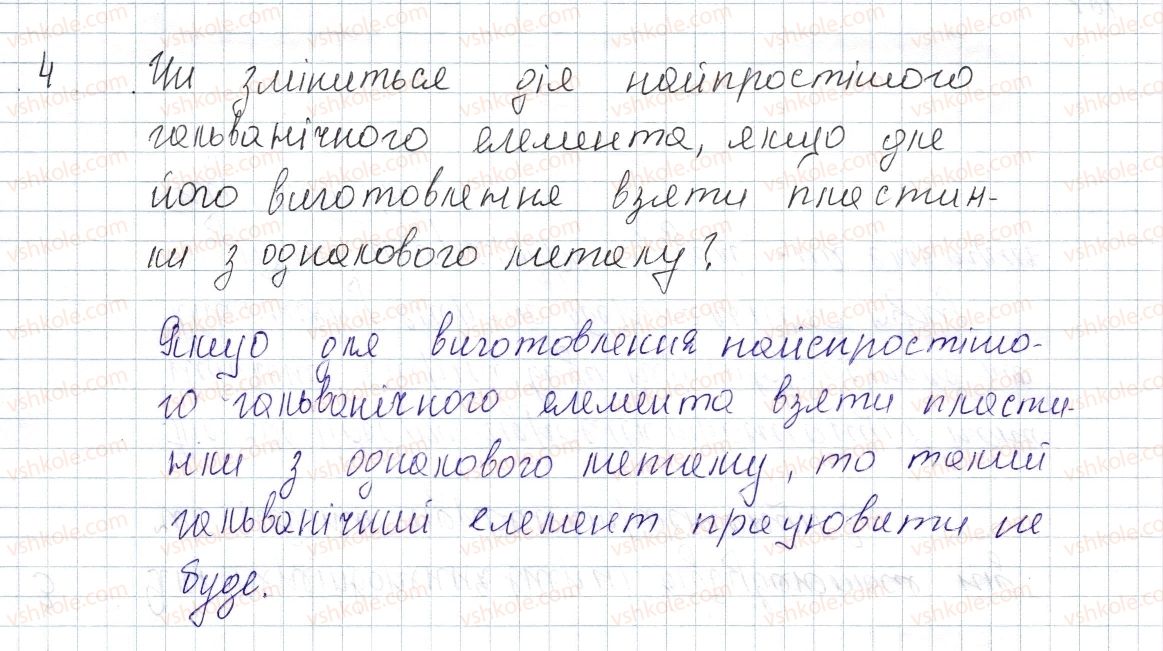 4 Чи зміниться дія найпростішого
гальванічного елемента, якщо для
його виготовлення взяти пластин-
ки з однакового металу?
Якщо для виготовлення найпростішо-
го гальванічного елемента взяти пласти-
нки з однакового металу, то такий
гальванічний елемент працювати не
буде.